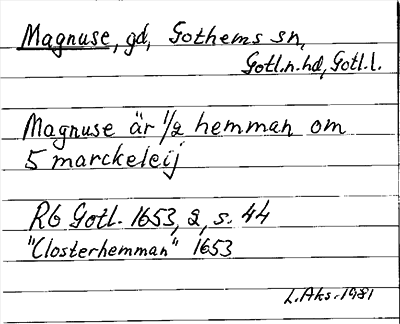 Magnuse, gd, Gothems sn,
Gotl.n.hd, Gotl.l.
Magnuse är 1/2 hemman om
5 marckeleij
RG Gotl. 1653, 2, s. 44
"Closterhemman" 1653
L.Aks. 1981